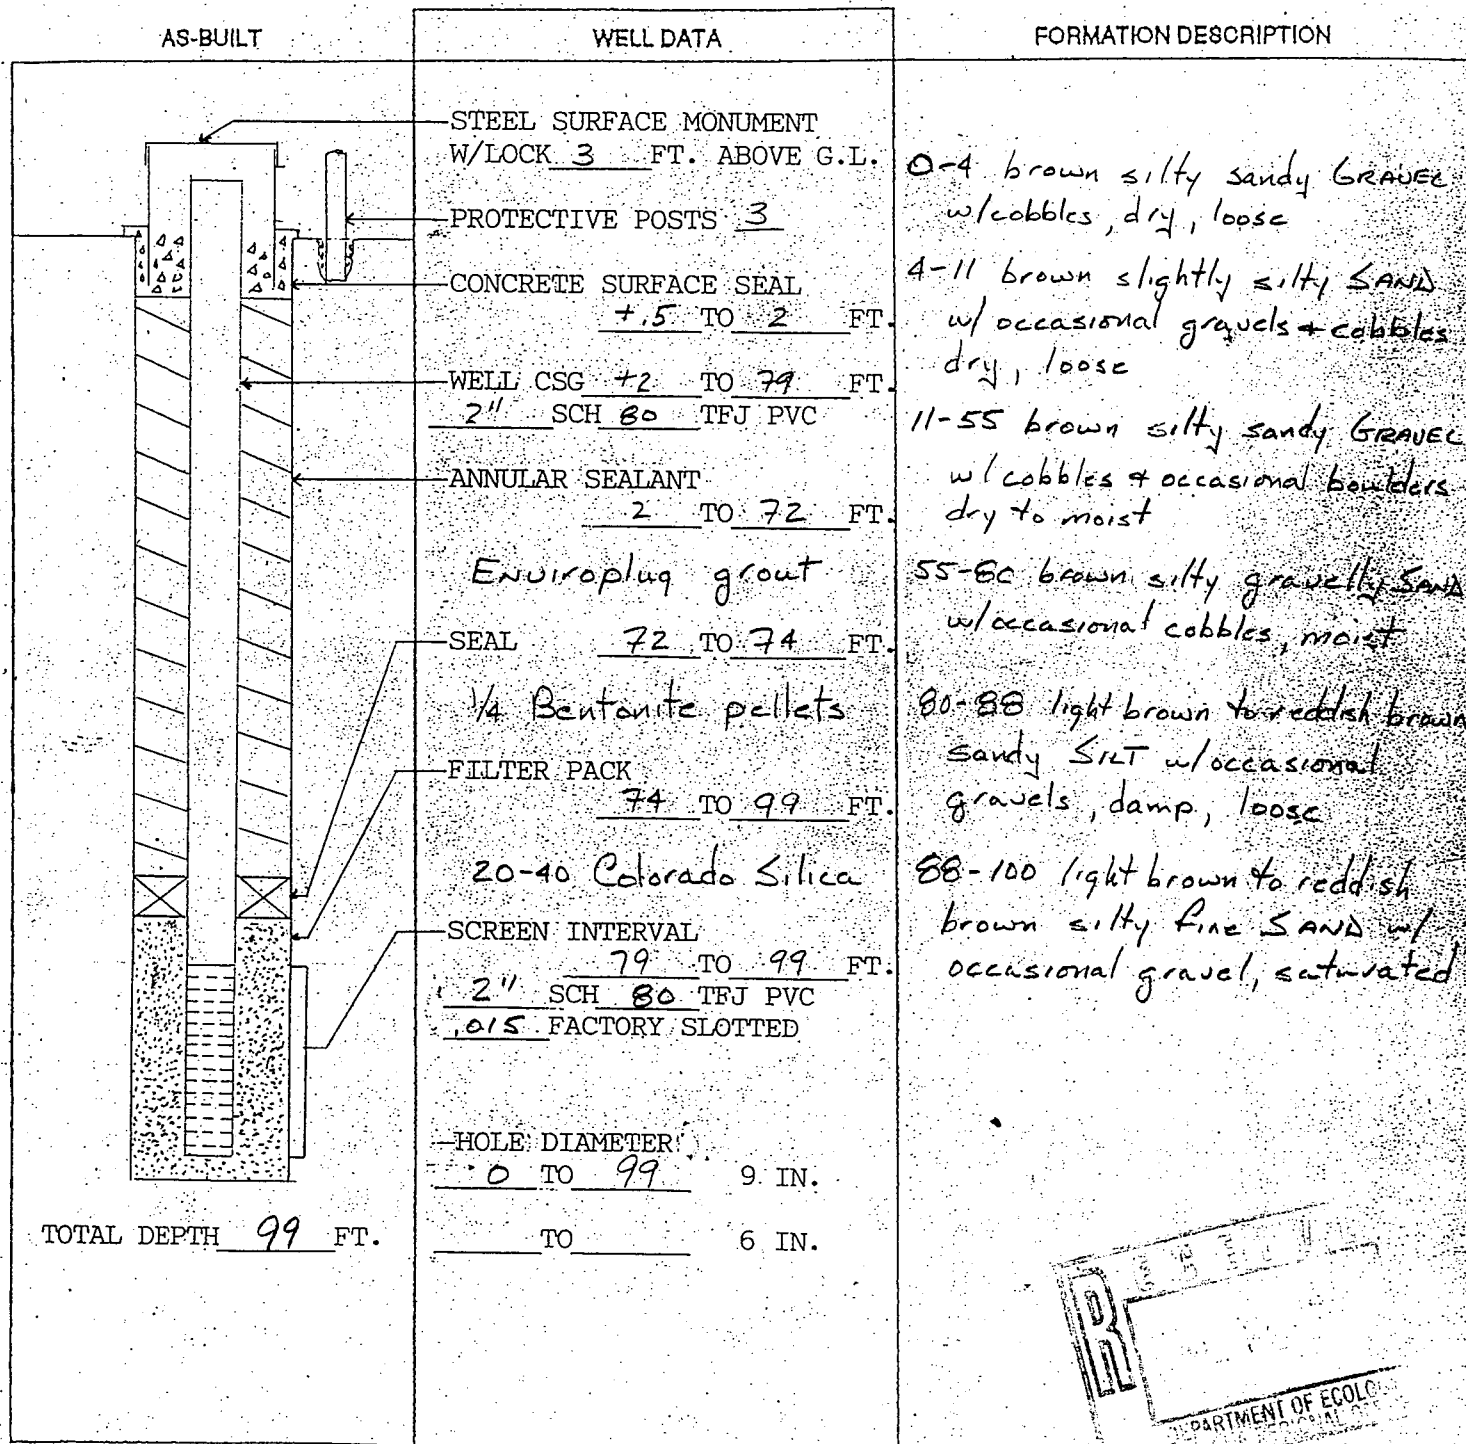 AS-BUILT
WELL DATA
FORMATION DESCRIPTION
STEEL SURFACE MONUMENT
W/LOCK 3 FT. ABOVE G.L.
PROTECTIVE POSTS 3
CONCRETE SURFACE SEAL
+.5 TO 2 FT.
WELL CSG +2 TO 79 FT.
2" SCH 80 TFJ PVC
ANNULAR SEALANT
2 TO 72 FT.
Enviroplug grout
SEAL 72 TO 74 FT.
1/4 Bentonite pellets
FILTER PACK
74 TO 99 FT.
20-40 Colorado Silica
SCREEN INTERVAL
79 TO 99 FT.
2" SCH 80 TFJ PVC
.015 FACTORY SLOTTED
HOLE DIAMETER
0 TO 99 9 IN.
TO 6 IN.
TOTAL DEPTH 99 FT.
0-4 brown silty sandy GRAVEL
w/cobbles, dry, loose
4-11 brown slightly silty SAND
w/ occasional gravels + cobbles
dry, loose
11-55 brown silty sandy GRAVEL
w/ cobbles + occasional boulders
dry to moist
brown silty gravelly SAND
w/occasional cobbles, moist
80-88 light brown to reddish brown
sandy SILT w/occasional
gravels, damp, loose
88-100 light brown to reddish
brown silty fine SAND w/
occasional gravel, saturated
PARTMENT OF ECOLO